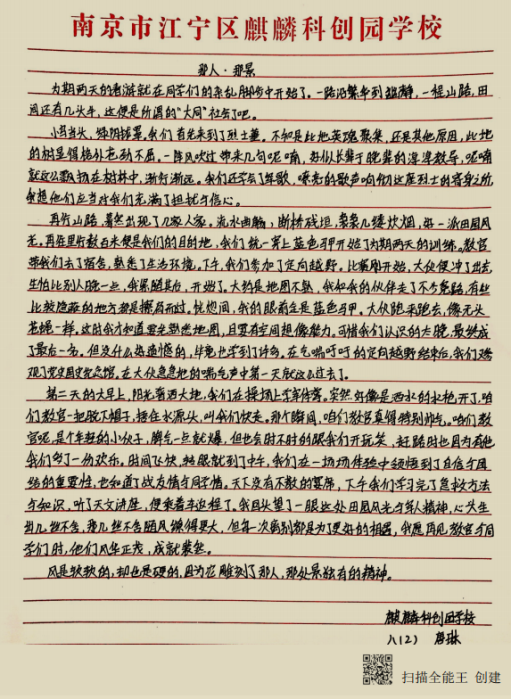 南京市江宁区麒麟科创园学校
那人·那景
为期两天的春游就在同学们的杂乱脚步中开始了。一路沿繁华到幽静,一程山路,田
间还有几头牛,这便是所谓的“大同”社会了吧。
我们首先来到了烈士墓。不知是比地英魂聚集,还是其他原因,此地
的树显得格外苍劲不屈。一阵风吹过带来几句呢喃,好似长辈于晚辈的谆谆教导,呢喃
就这么飘扬在树林中,渐行渐远。我们还学了军歌,嘹亮的歌声响彻这座烈士的容身之所,
我想他们应当对我们充满了担忧与信心。
再行山路,蓦然出现了几家人家,流水幽幽,断桥残垣,袅袅几缕炊烟,好一派田园风
光。再往里行数百米便是我们的目的地,我们统一穿上蓝色马甲开始了为期两天的训练。教官
带我们去了宿舍,熟悉了生活环境。下午,我们参加了定向越野。比赛刚开始,大伙便冲了出去,
生怕比别人晚一点,我紧随其后,开始了。大约是地图不熟,我和我的伙伴走了不少弯路,有些
比较隐蔽的地方都是擦肩而过,恍惚间,我的眼前全是蓝色马甲。大伙跑来跑去,像无头
苍蝇一样,这时我才知道要先熟悉地图,且要有空间想像能力。可惜我们认识的太晚,最终成
了最后一名。但没什么好遗憾的,毕竟也学到了许多,在气喘吁吁的定向越野结束后,我们参
观了党史国史纪念馆,在大伙急急地的喘气声中第一天就这么过去了。
第二天的大早上,阳光普洒大地,我们在操场上学军体拳。突然好像是洒水的水枪开了,咱
们教官一把脱下帽子,捂住水源头,叫我们快走。那个瞬间,咱们教官真得特别帅气。咱们教
官呢,是个年轻的小伙子,脾气一点就爆,但也会时不时的跟我们开玩笑,赶路时也因为有他
我们多了一份欢乐。时间飞快,转眼就到了中午,我们在一场场体验中领悟到了自信与团
结的重要性,也知道了战友情与同学情。天下没有不散的宴席,下午我们学习完了急救方法
与知识,听了天文讲座,便乘着车返程了。我回头望了一眼这处田园风光与军人精神,心头生
出几丝不舍,那几丝不舍随风飘得更大,但每一次离别都是为了更好的相遇,我愿再见教官与同
学们时,他们风华正茂,成就斐然。
风是轻软的,却也是硬的,因为它雕刻了那人,那处景独有的精神。
麒麟科创园学校
八(2)
扫描全能王 创建